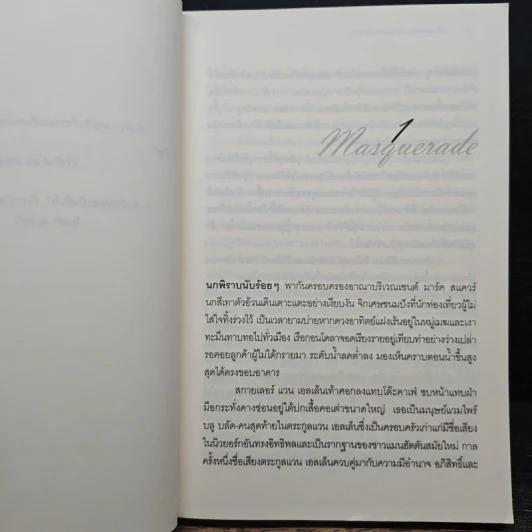 1
Masquerade
นกพิราบนับร้อยๆ พากันครอบครองอาณาบริเวณเซนต์ มาร์ค สแควร์
นกสีเทาตัวอ้วนเดินเตาะแตะอย่างเงียบงัน จิกเศษขนมปังที่นักท่องเที่ยวผู้ไม่
ใส่ใจทิ้งร่วงไว้ เป็นเวลายามบ่ายหากดวงอาทิตย์แฝงเร้นอยู่ในหมู่เมฆและเงา
ทะมึนทาบทอไปทั่วเมือง เรือกอนโดลาจอดเรียงรายอยู่เทียบท่าอย่างว่างเปล่า
รอคอยลูกค้าผู้ไม่ได้กรายมา ระดับน้ำลดต่ำลง มองเห็นคราบตอนน้ำขึ้นสูง
สุดได้ตรงขอบอาคาร
สกายเลอร์ แวน เอลเล็นเท้าศอกลงแทบโต๊ะคาเฟ่ ซบหน้าแทบฝ่า
มือกระทั่งคางซ่อนอยู่ใต้ปกเสื้อคอเต่าขนาดใหญ่ เธอเป็นมนุษย์แวมไพร์
บลู บลัด-คนสุดท้ายในตระกูลแวน เอลเล็นซึ่งเป็นครอบครัวเก่าแก่มีชื่อเสียง
ในนิวยอร์กอันทรงอิทธิพลและเป็นรากฐานของชาวแมนฮัตตันสมัยใหม่ กาล
ครั้งหนึ่งชื่อเสียงตระกูลแวน เอลเล็นควบคู่มากับความมีอำนาจ อภิสิทธิ์และ